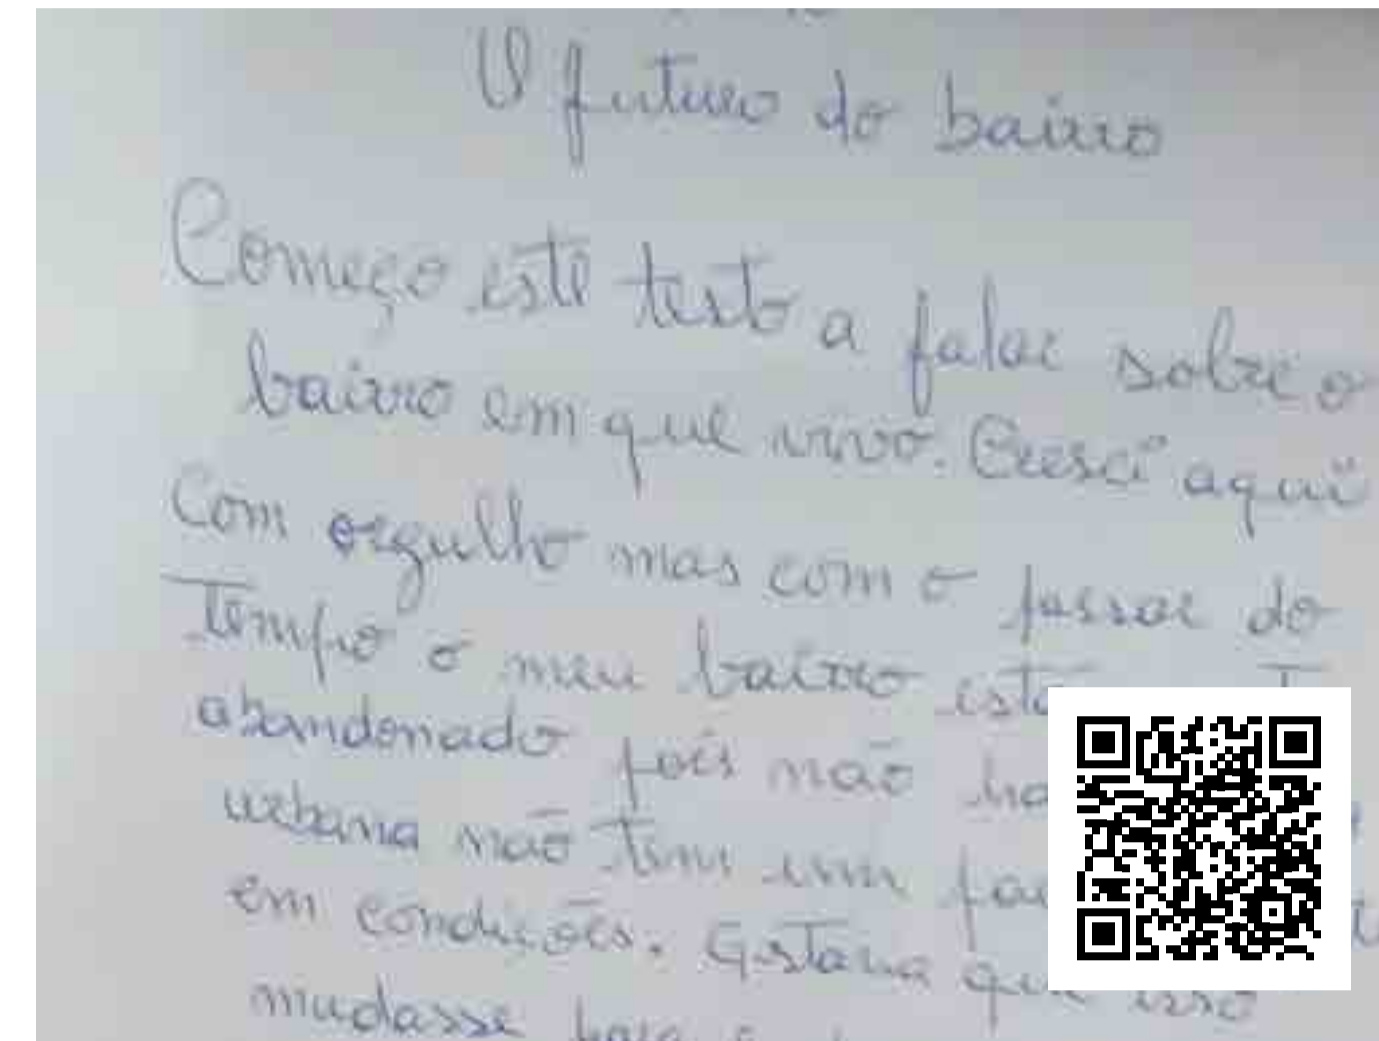 O futuro do bairro
Começo este texto a falar sobre o
bairro em que vivo. Cresci aqui
Com orgulho mas com o passar do
Tempo o meu bairro está
abandonado pois não
urbana não tem um
em condições. Gstaria que isso
mudasse